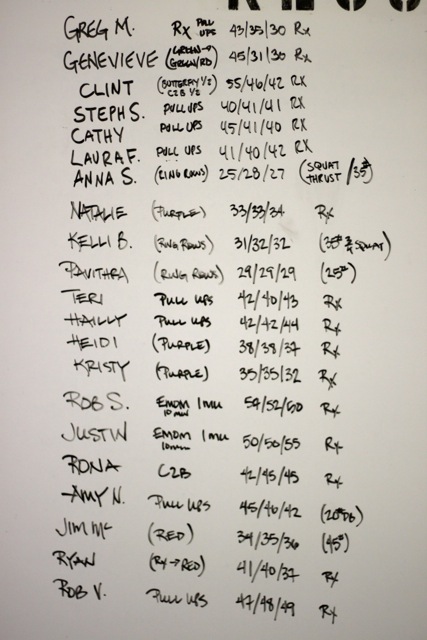 GREG M. RX PULL UPS 43/35/30 RX
GENEVIEVE (GREEN→ GREEN/RD) 45/31/30 RX
CLINT (BUTTERFLY 1/2 C2B 1/2) 55/46/42 RX
STEPH S. PULL UPS 40/41/41 RX
CATHY PULL UPS 45/41/40 RX
LAURA F. PULL UPS 41/40/42 RX
ANNA S. (RING ROWS) 25/28/27 (SQUAT THRUST /35#)
NATALIE (PURPLE) 33/33/34 RX
KELLI B. (RING ROWS) 31/32/32 (35# 3/4 SQUAT)
PAVITHRA (RING ROWS) 29/29/29 (25#)
TERI PULL UPS 42/40/43 RX
HAILLY PULL UPS 42/42/44 RX
HEIDI (PURPLE) 38/38/37 RX
KRISTY (PURPLE) 35/35/32 RX
ROB S. EMOM 1 MU 10 MIN 54/52/60 RX
JUSTIN EMOM 1 MU 10 MIN 50/50/55 RX
RONA C2B 42/45/45 RX
AMY N. PULL UPS 45/46/42 (20# DB)
JIM MC (RED) 34/35/36 (45#)
RYAN (RX→RED) 41/40/37 RX
ROB V. PULL UPS 47/48/49 RX